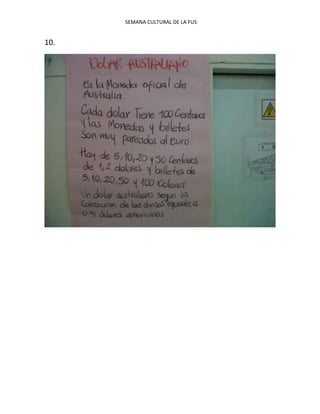 SEMANA CULTURAL DE LA FUS
10.
DOLAR AUSTRALIANO
Es la Moneda oficial de
Australia.
Cada dolar Tiene 100 Centavos
y las Monedas y billetes
Son muy parecidos al Euro
Hay de 5,10,20 y 50 Centavos
de 1,2 dolares y billetes de
5,10,20,50 y 100 Dolares
Un dolar australiano segun la
Cotizacion de las divisas equivale a
dolares americanos